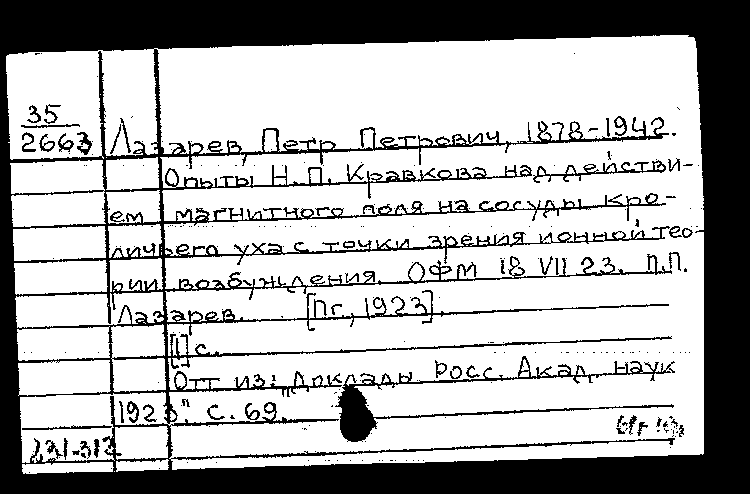 35
2663 Лазарев, Петр Петрович, 1878-1942.
Опыты Н.П. Кравкова над действи-
ем магнитного поля на сосуды кро-
личьего уха с точки зрения ионной тео-
рии возбуждения. ОФМ 18 VII 23. П.П.
Лазарев. [Пг, 1923].
[1] с.
Отт из: "Доклады Росс. Акад. наук
1923". С. 69.
231-312